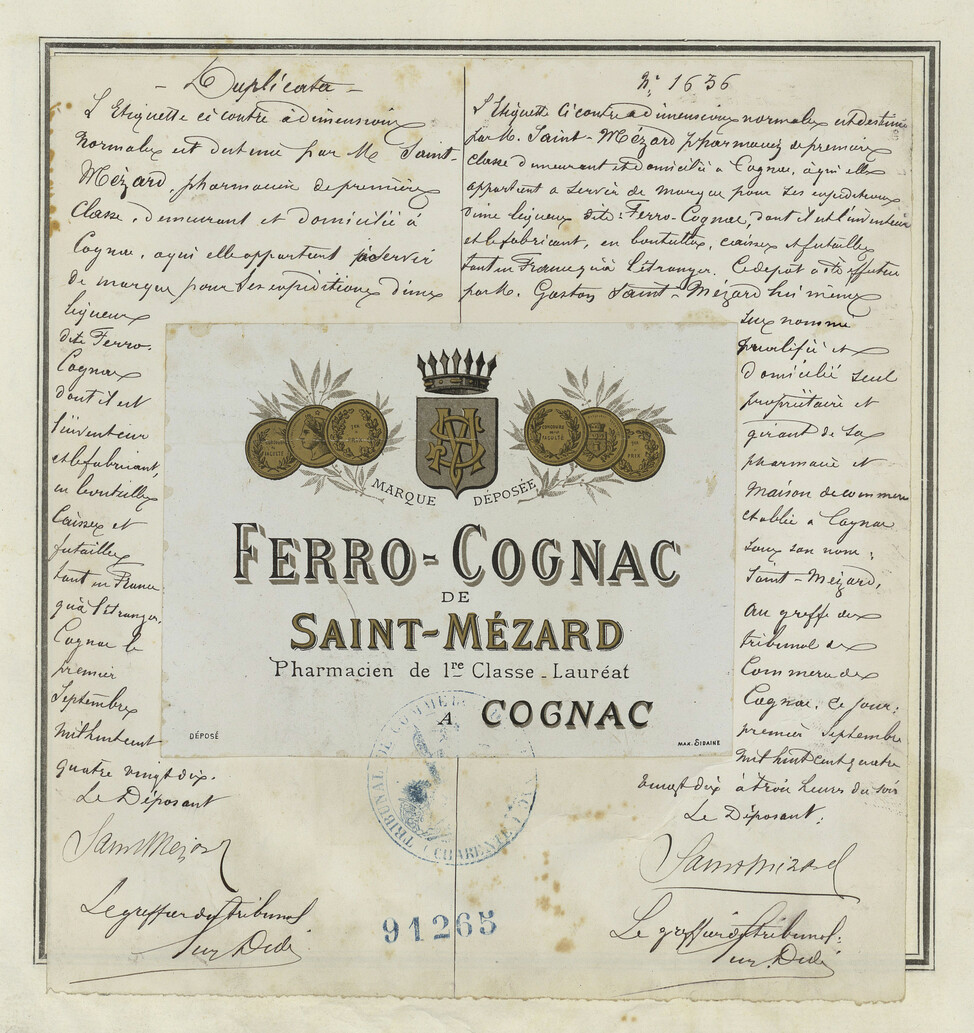 - Duplicata -
L'Etiquette ci contre à dimensions
normales est destinée par Mr Saint-
Mézard, pharmacien de première
Classe, demeurant et domicilié à
Cognac, à qui elle appartient à servir
de marque pour ses expéditions d'une
liqueur
dite Ferro-
Cognac
dont il est
l'inventeur
et le fabricant,
en bouteilles
Caisses et
futailles
tant en France
qu'à l'étranger.
Cognac le
premier
Septembre
mil huit cent
quatre vingt dix.
Le Déposant
Saint Mézard
Le greffier du tribunal
No 1636
L'Etiquette ci contre à dimensions normales est destinée
par M. Saint-Mézard pharmacien de première
classe demeurant et domicilié à Cognac, à qui elle
appartient à servir de marque pour ses expéditions
d'une liqueur dite: Ferro-Cognac, dont il est l'inventeur
et le fabricant, en bouteilles, caisses et futailles
tant en France qu'à l'étranger. Ce dépot a été effectué
par M. Gaston Saint-Mézard lui même
sus nommé
qualifié et
domicilié seul
propriétaire et
gérant de sa
pharmacie et
Maison de commerce
établie à Cognac
sous son nom:
Saint-Mézard,
au greffe du
tribunal de
Commerce de
Cognac, ce jour:
premier Septembre
mil huit cent quatre
vingt dix à trois heures du soir
Le Déposant:
Saint Mézard
Le greffier du tribunal:
MARQUE DÉPOSÉE
FERRO-COGNAC
DE
SAINT-MÉZARD
Pharmacien de 1re Classe - Lauréat
A COGNAC
DÉPOSÉ
MAX. SIDAINE
TRIBUNAL DE COMMERCE
CHARENTE
91265